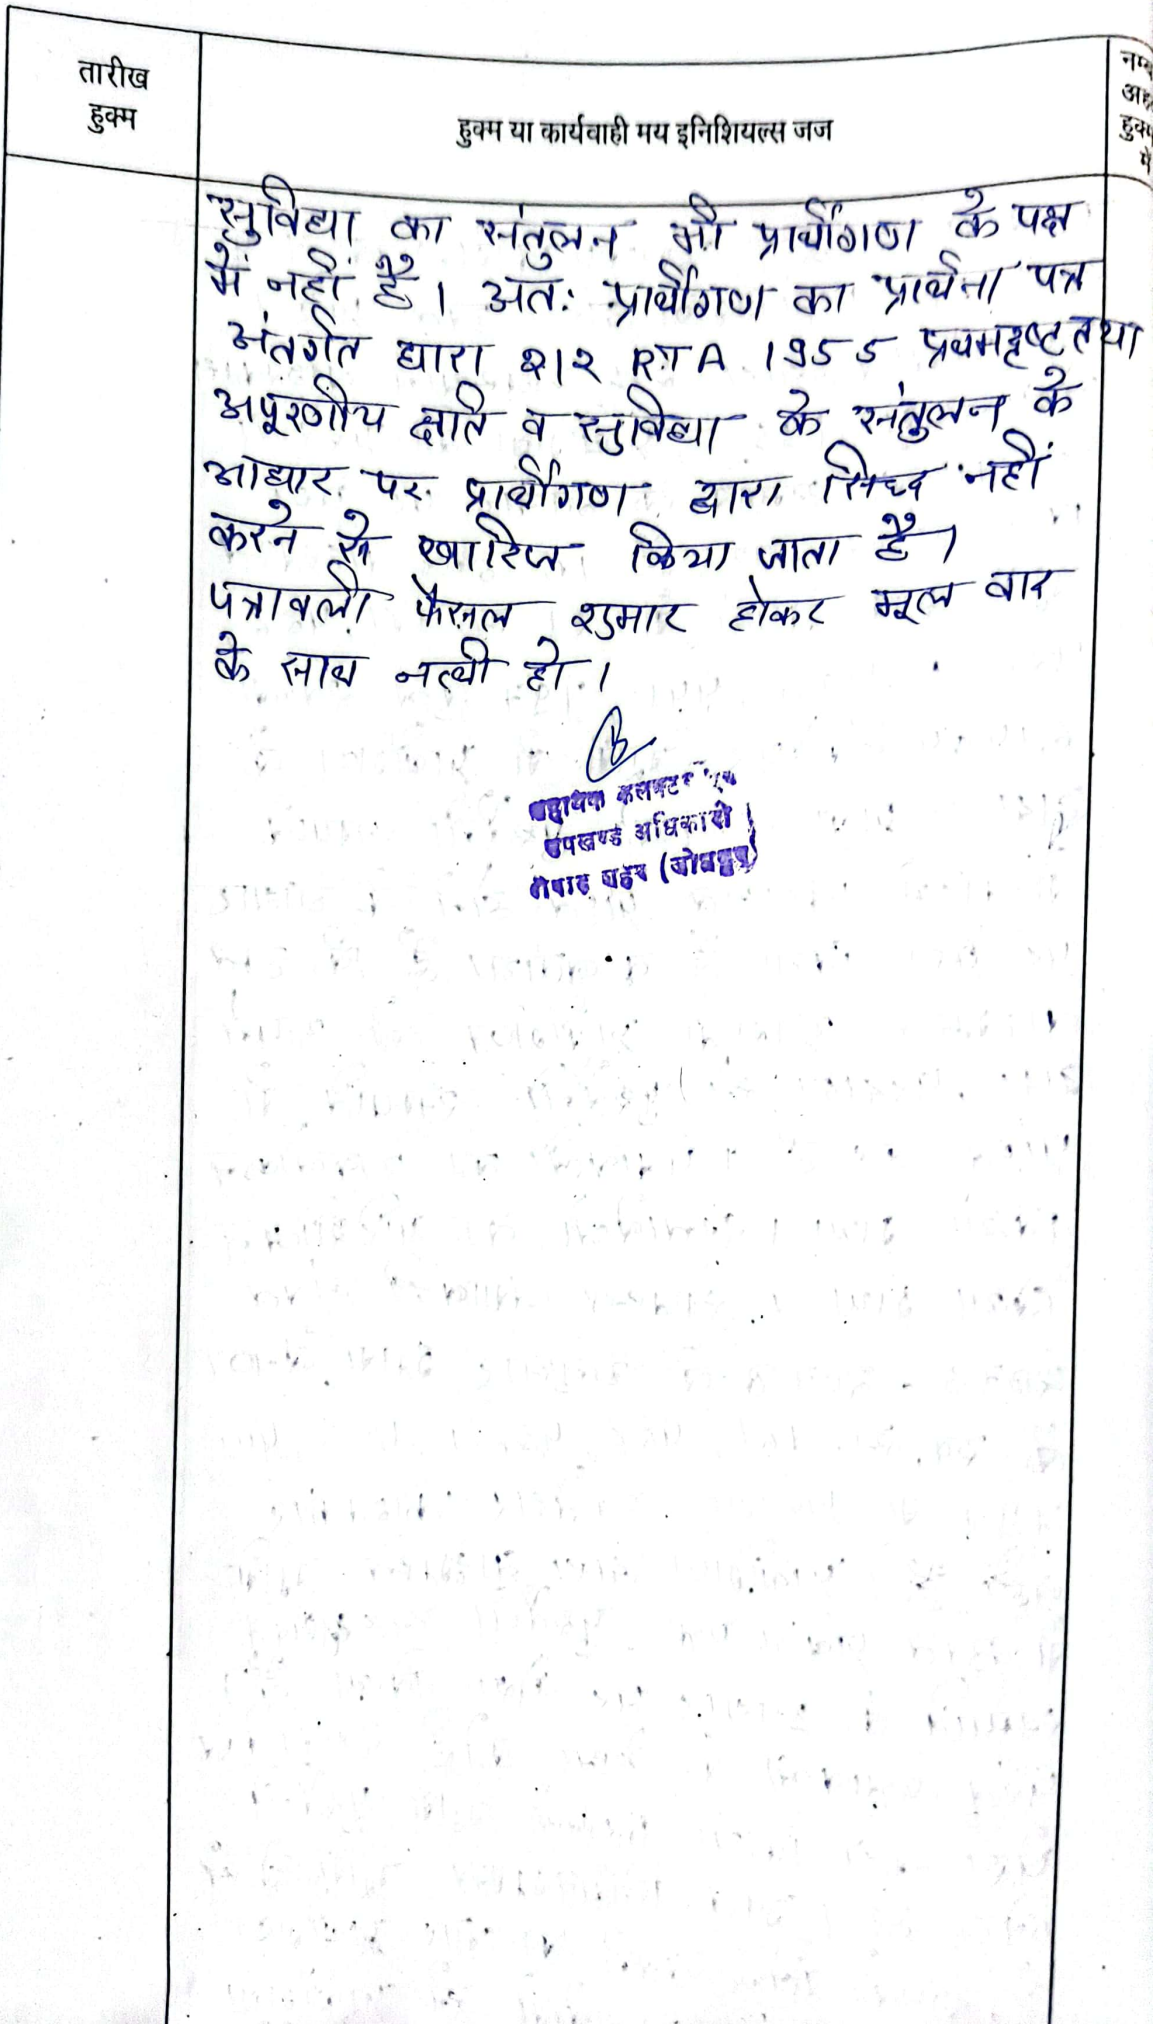 तारीख
हुक्म
हुक्म या कार्यवाही मय इनिशियल्स जज
हुक्म
में
सुविधा का संतुलन भी प्रार्थीगण के पक्ष
में नहीं है। अतः प्रार्थीगण का प्रार्थना पत्र
अंतर्गत धारा 212 RTA 1955 प्रथमदृष्टतया
अपूरणीय क्षति व सुविधा के संतुलन के
आधार पर प्रार्थीगण द्वारा सिध्द नहीं
करने से खारिज किया जाता है।
पत्रावली फैसल शुमार होकर मूल वाद
के साथ नत्थी हो।
सहायक कलक्टर एवं
उपखण्ड अधिकारी
(जोधपुर)